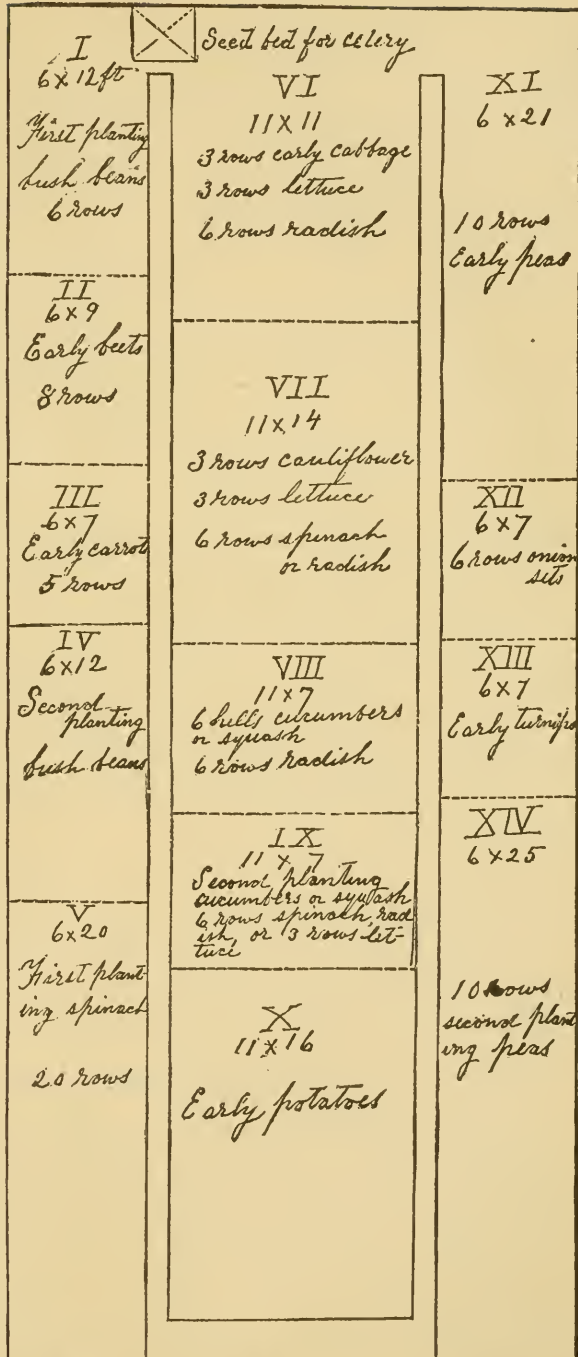 Seed bed for celery
I
6 x 12 ft
First planting
bush beans
6 rows
II
6 x 9
Early beets
8 rows
III
6 x 7
Early carrots
5 rows
IV
6 x 12
Second
planting
bush beans
V
6 x 20
First plant-
ing spinach
20 rows
VI
11 x 11
3 rows early cabbage
3 rows lettuce
6 rows radish
VII
11 x 14
3 rows cauliflower
3 rows lettuce
6 rows spinach
or radish
VIII
11 x 7
6 hills cucumbers
or squash
6 rows radish
IX
11 x 7
Second planting
cucumbers or squash
6 rows spinach, rad
ish, or 3 rows let-
tuce
X
11 x 16
Early potatoes
XI
6 x 21
10 rows
Early peas
XII
6 x 7
6 rows onion
sets
XIII
6 x 7
Early turnips
XIV
6 x 25
10 rows
second plant
ing peas